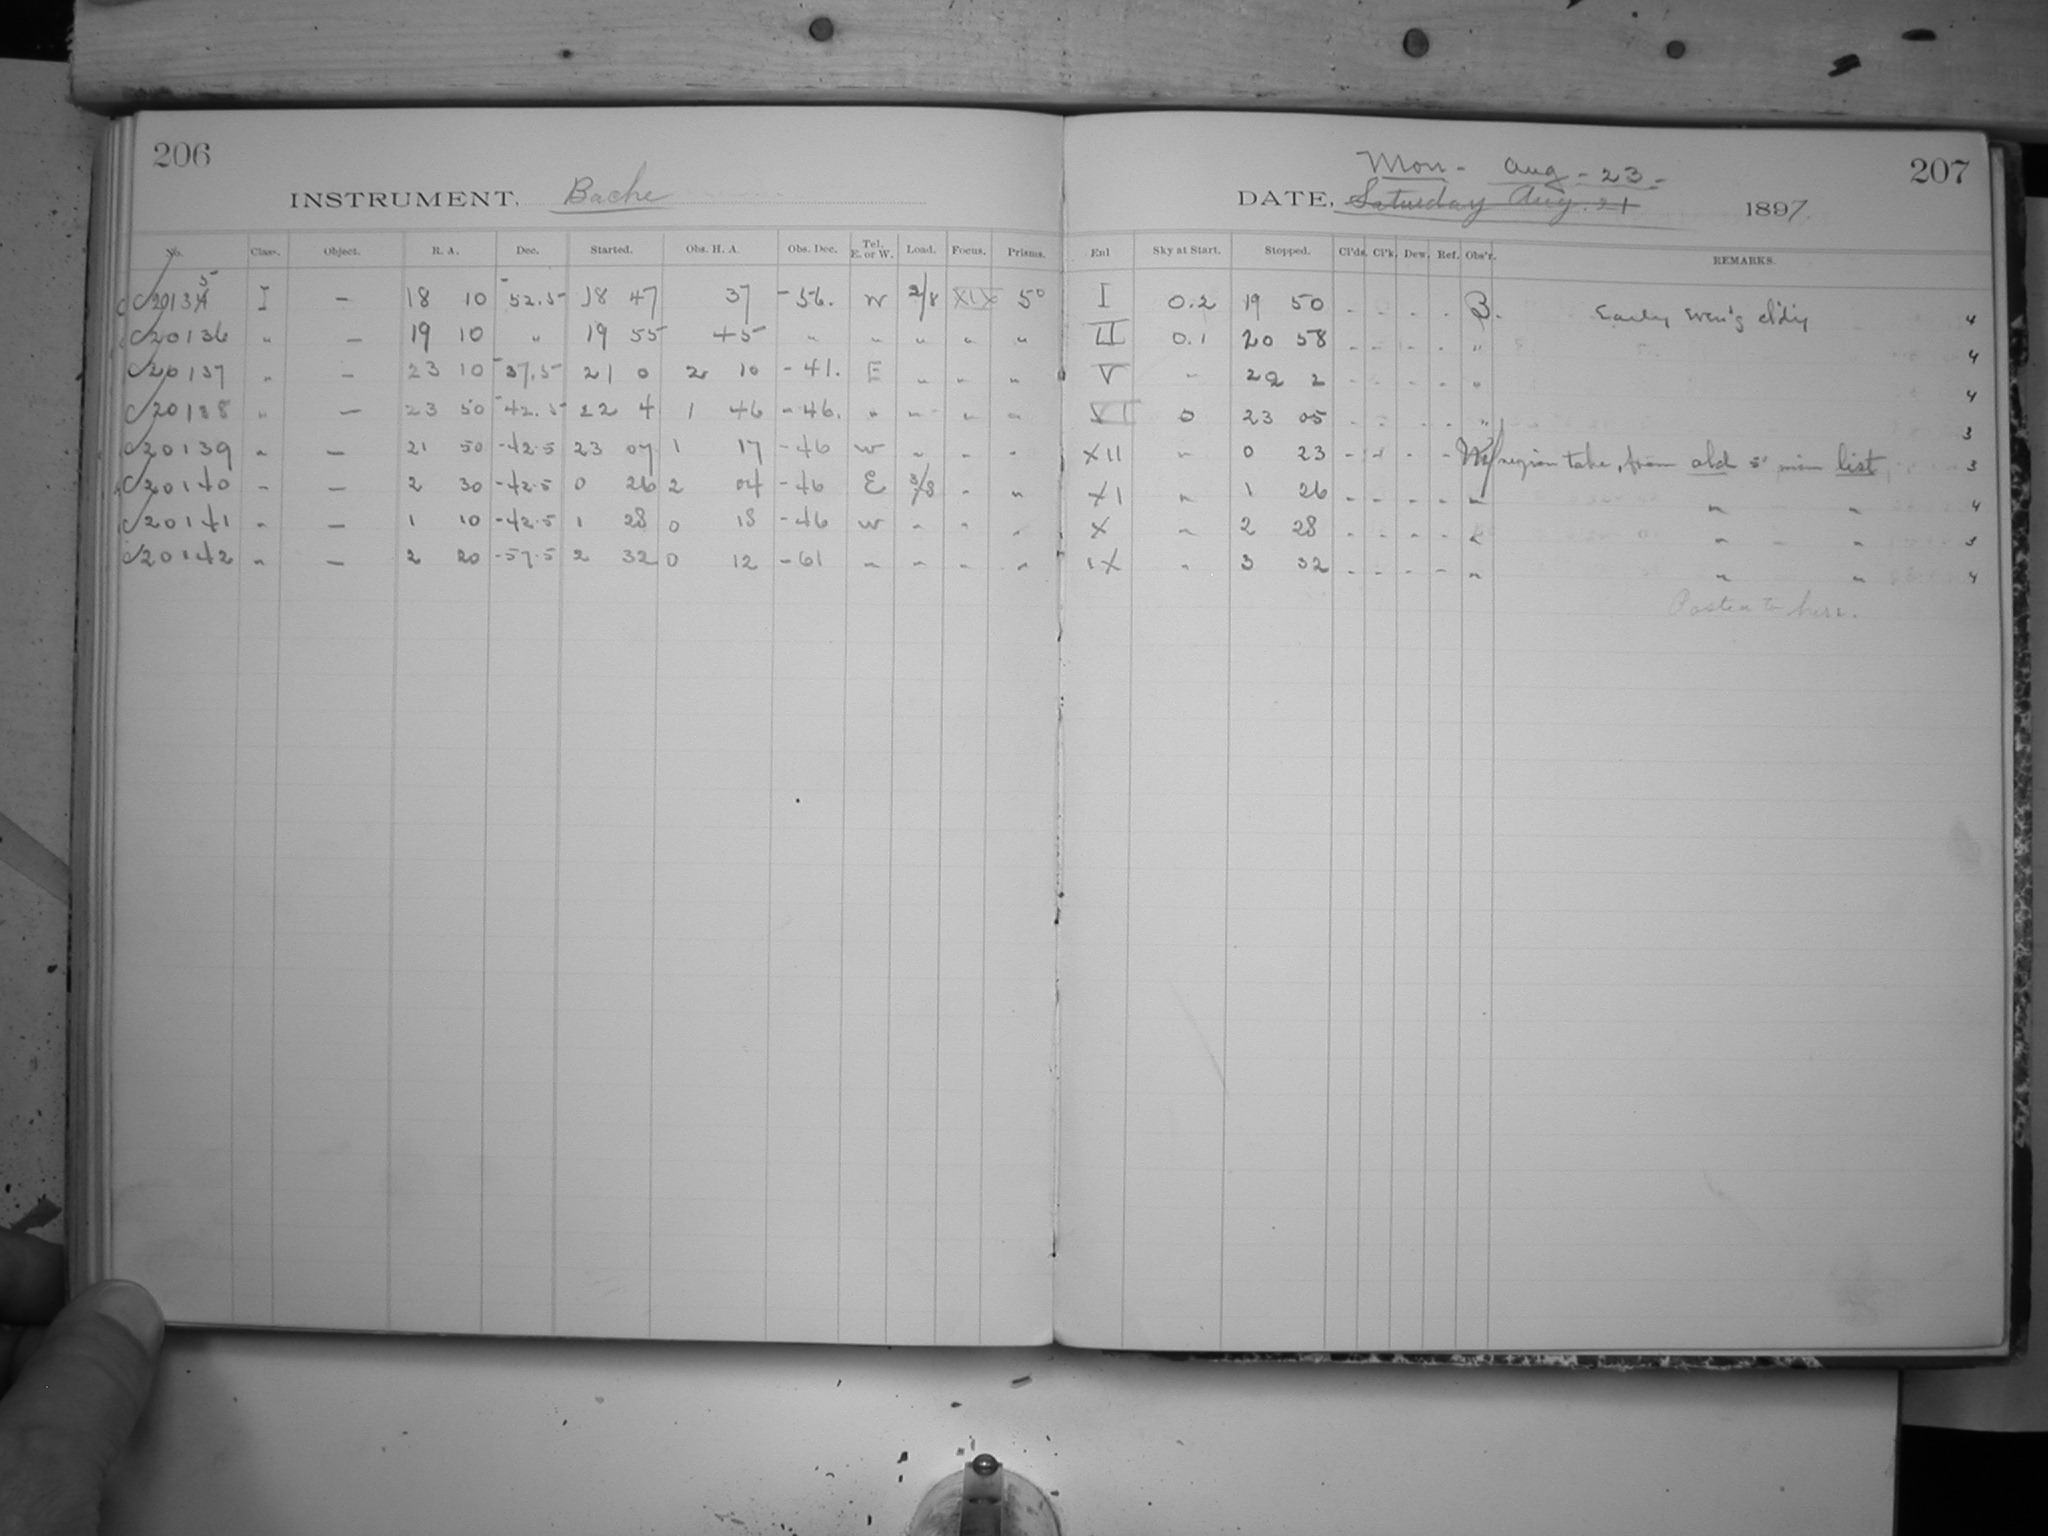 206
INSTRUMENT, Bache
No. Class. Object. R. A. Dec. Started. Obs. H. A. Obs. Dec. Tel. E. or W. Load. Focus. Prisms.
20135 I – 18 10 -52.5 18 47 37 -56. W 2/8 XIX 5°
20136 " – 19 10 " 19 55 +5 " " " " "
20137 " – 23 10 -37.5 21 0 2 10 -41. E " " "
20138 " – 23 50 -42.5 22 4 1 46 -46. " " " "
20139 " – 21 50 -42.5 23 07 1 17 -46 W " " "
20140 " – 2 30 -42.5 0 26 2 04 -46 E 3/8 " "
20141 " – 1 10 -42.5 1 28 0 18 -46 W " " "
20142 " – 2 20 -57.5 2 32 0 12 -61 " " " "
207
Mon - Aug - 23 -
DATE, Saturday Aug. 21 1897.
Enl Sky at Start. Stopped. Cl'ds. Cl'k. Dew. Ref. Obs'r. REMARKS.
I 0.2 19 50 - - - - B. Early 4
II 0.1 20 58 - - - - " 4
V " 22 2 - - - - " 4
VI 0 23 05 - - - - " 3
XII " 0 23 - - - - region take, from old 5° list 3
XI " 1 26 - - - - " " " 4
X " 2 28 - - - - " " - " 3
IX " 3 32 - - - - " " " 4
Posted to here.